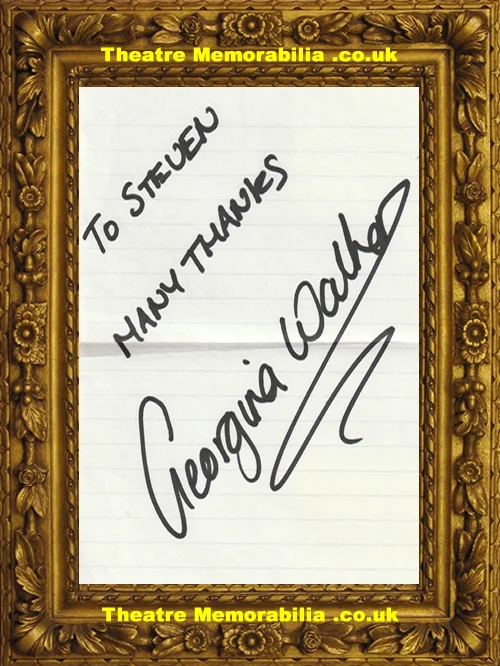 Theatre Memorabilia .co.uk
TO STEVEN
MANY THANKS
Georgina Walker
Theatre Memorabilia .co.uk